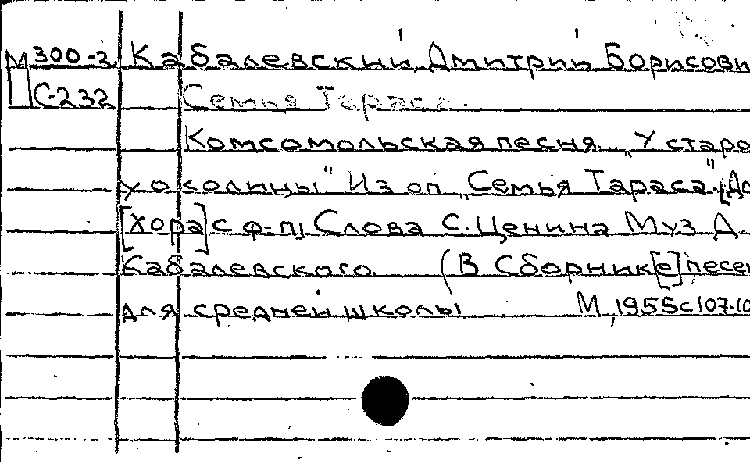 М 300-2 Кабалевский, Дмитрий Борисови
С-232 Семья Тараса.
Комсомольская песня „У старо
у околицы" Из оп „Семья Тараса" [Дл
[хора] с ф-п, Слова С. Ценина Муз Д.
Кабалевского. (В Сборник[е] песен
для средней школы М, 1955 с 107-10